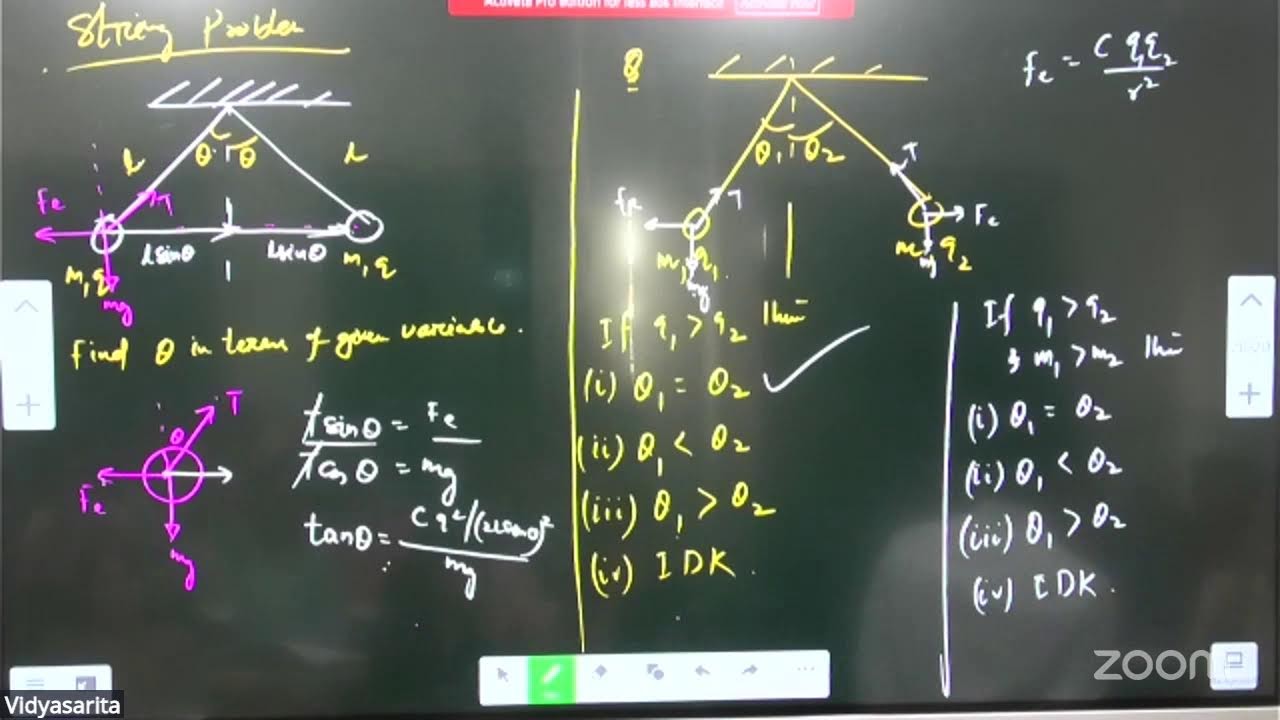 Activate Pro edition for less ads interface
String Problem
θ θ
l l
Fe T
lsinθ lsinθ
m, q m, q
mg
Find θ in terms of given variables.
T
θ
Fe
mg
Tsinθ = Fe
Tcosθ = mg
tanθ = Cq²/(2lsinθ)² / mg
Q
θ₁ θ₂
T T
Fe Fe
m, q₁ m q₂
mg mg
If q₁ > q₂ then
(i) θ₁ = θ₂ ✓
(ii) θ₁ < θ₂
(iii) θ₁ > θ₂
(iv) IDK.
Fe = C q₁q₂ / r²
If q₁ > q₂
& m₁ > m₂ then
(i) θ₁ = θ₂
(ii) θ₁ < θ₂
(iii) θ₁ > θ₂
(iv) IDK.
zoom
Vidyasarita